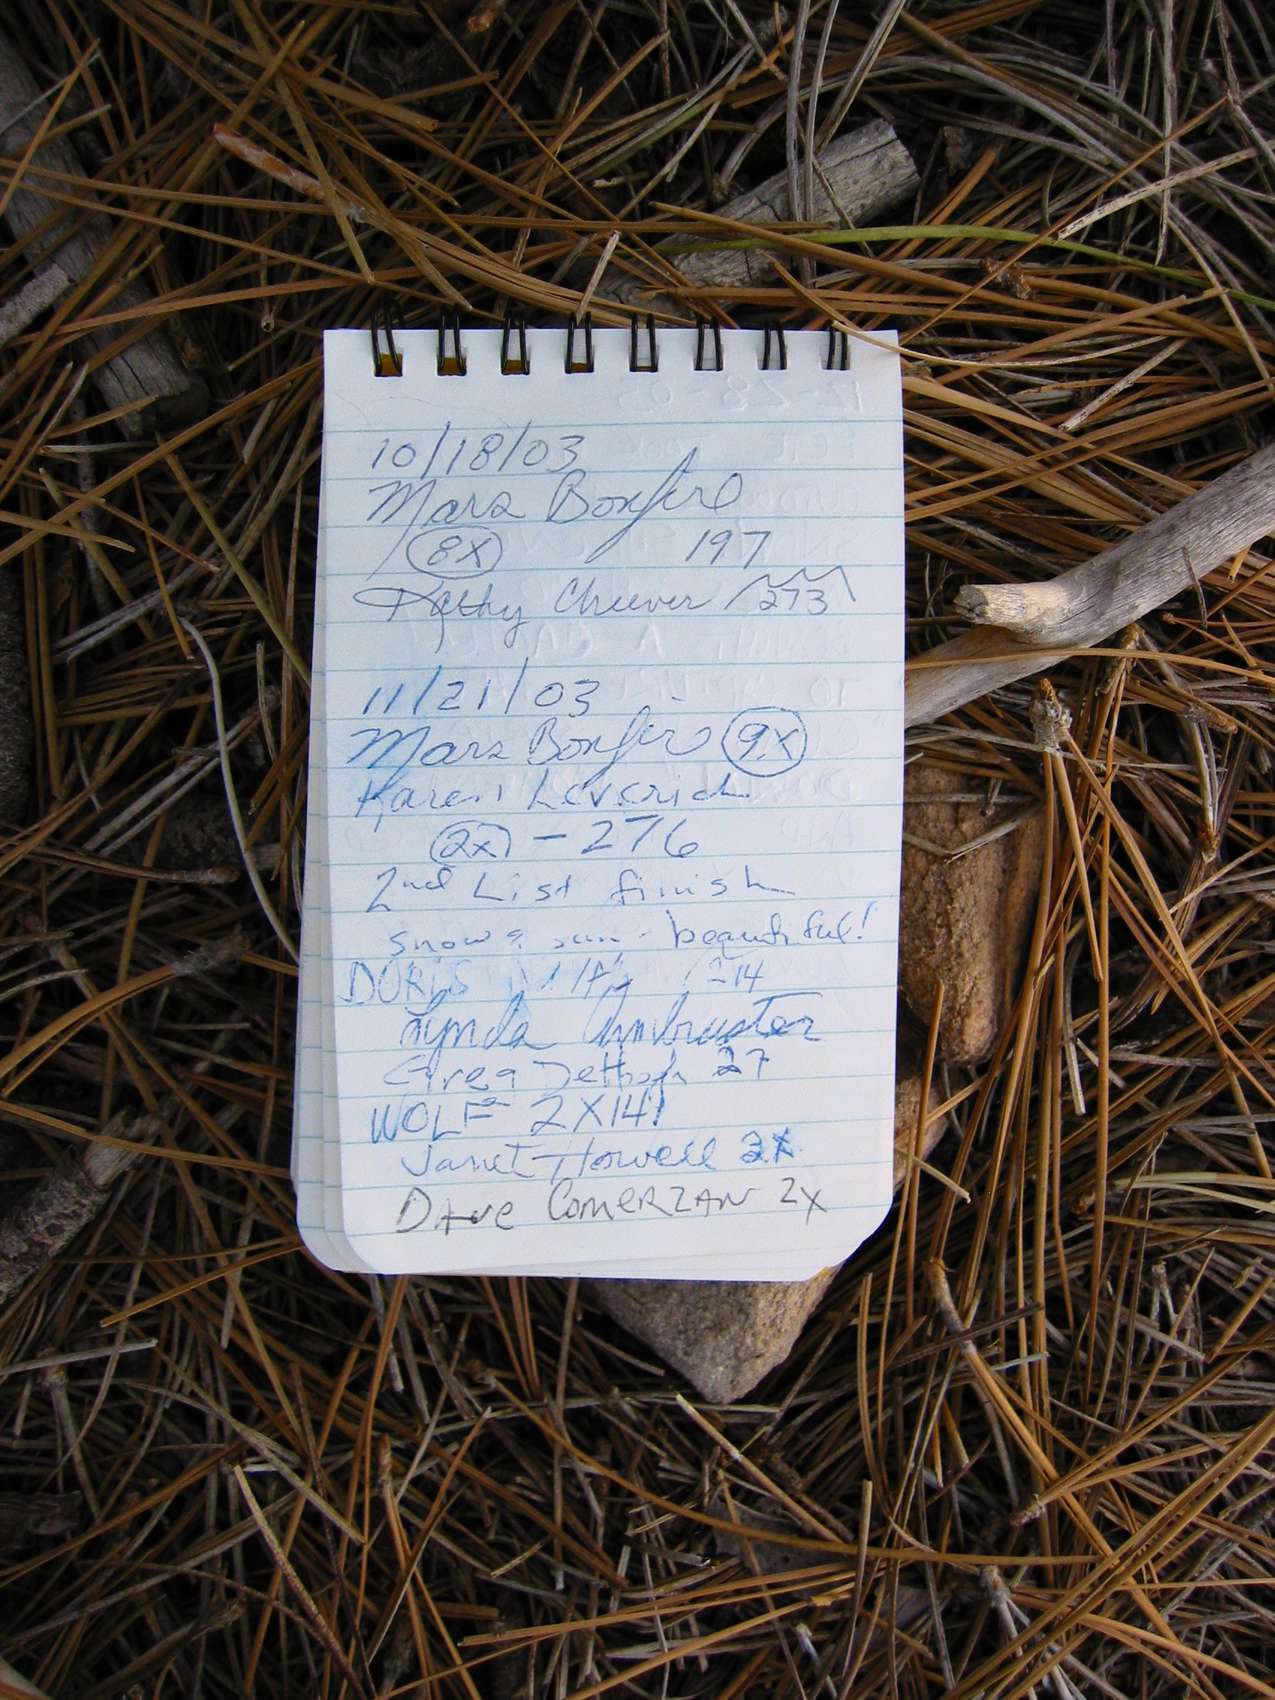 10/18/03
Mars Bonfire
8X 197
Kathy Cheever 273
11/21/03
Mars Bonfire 9X
Karen Leverich
2x - 276
2nd List finish
snow & sun - beautiful!
DORIS 214
Lynda Armbruster
Greg 27
WOLF 2X14!
Janet Howell 2X
DAVE COMERZAN 2X